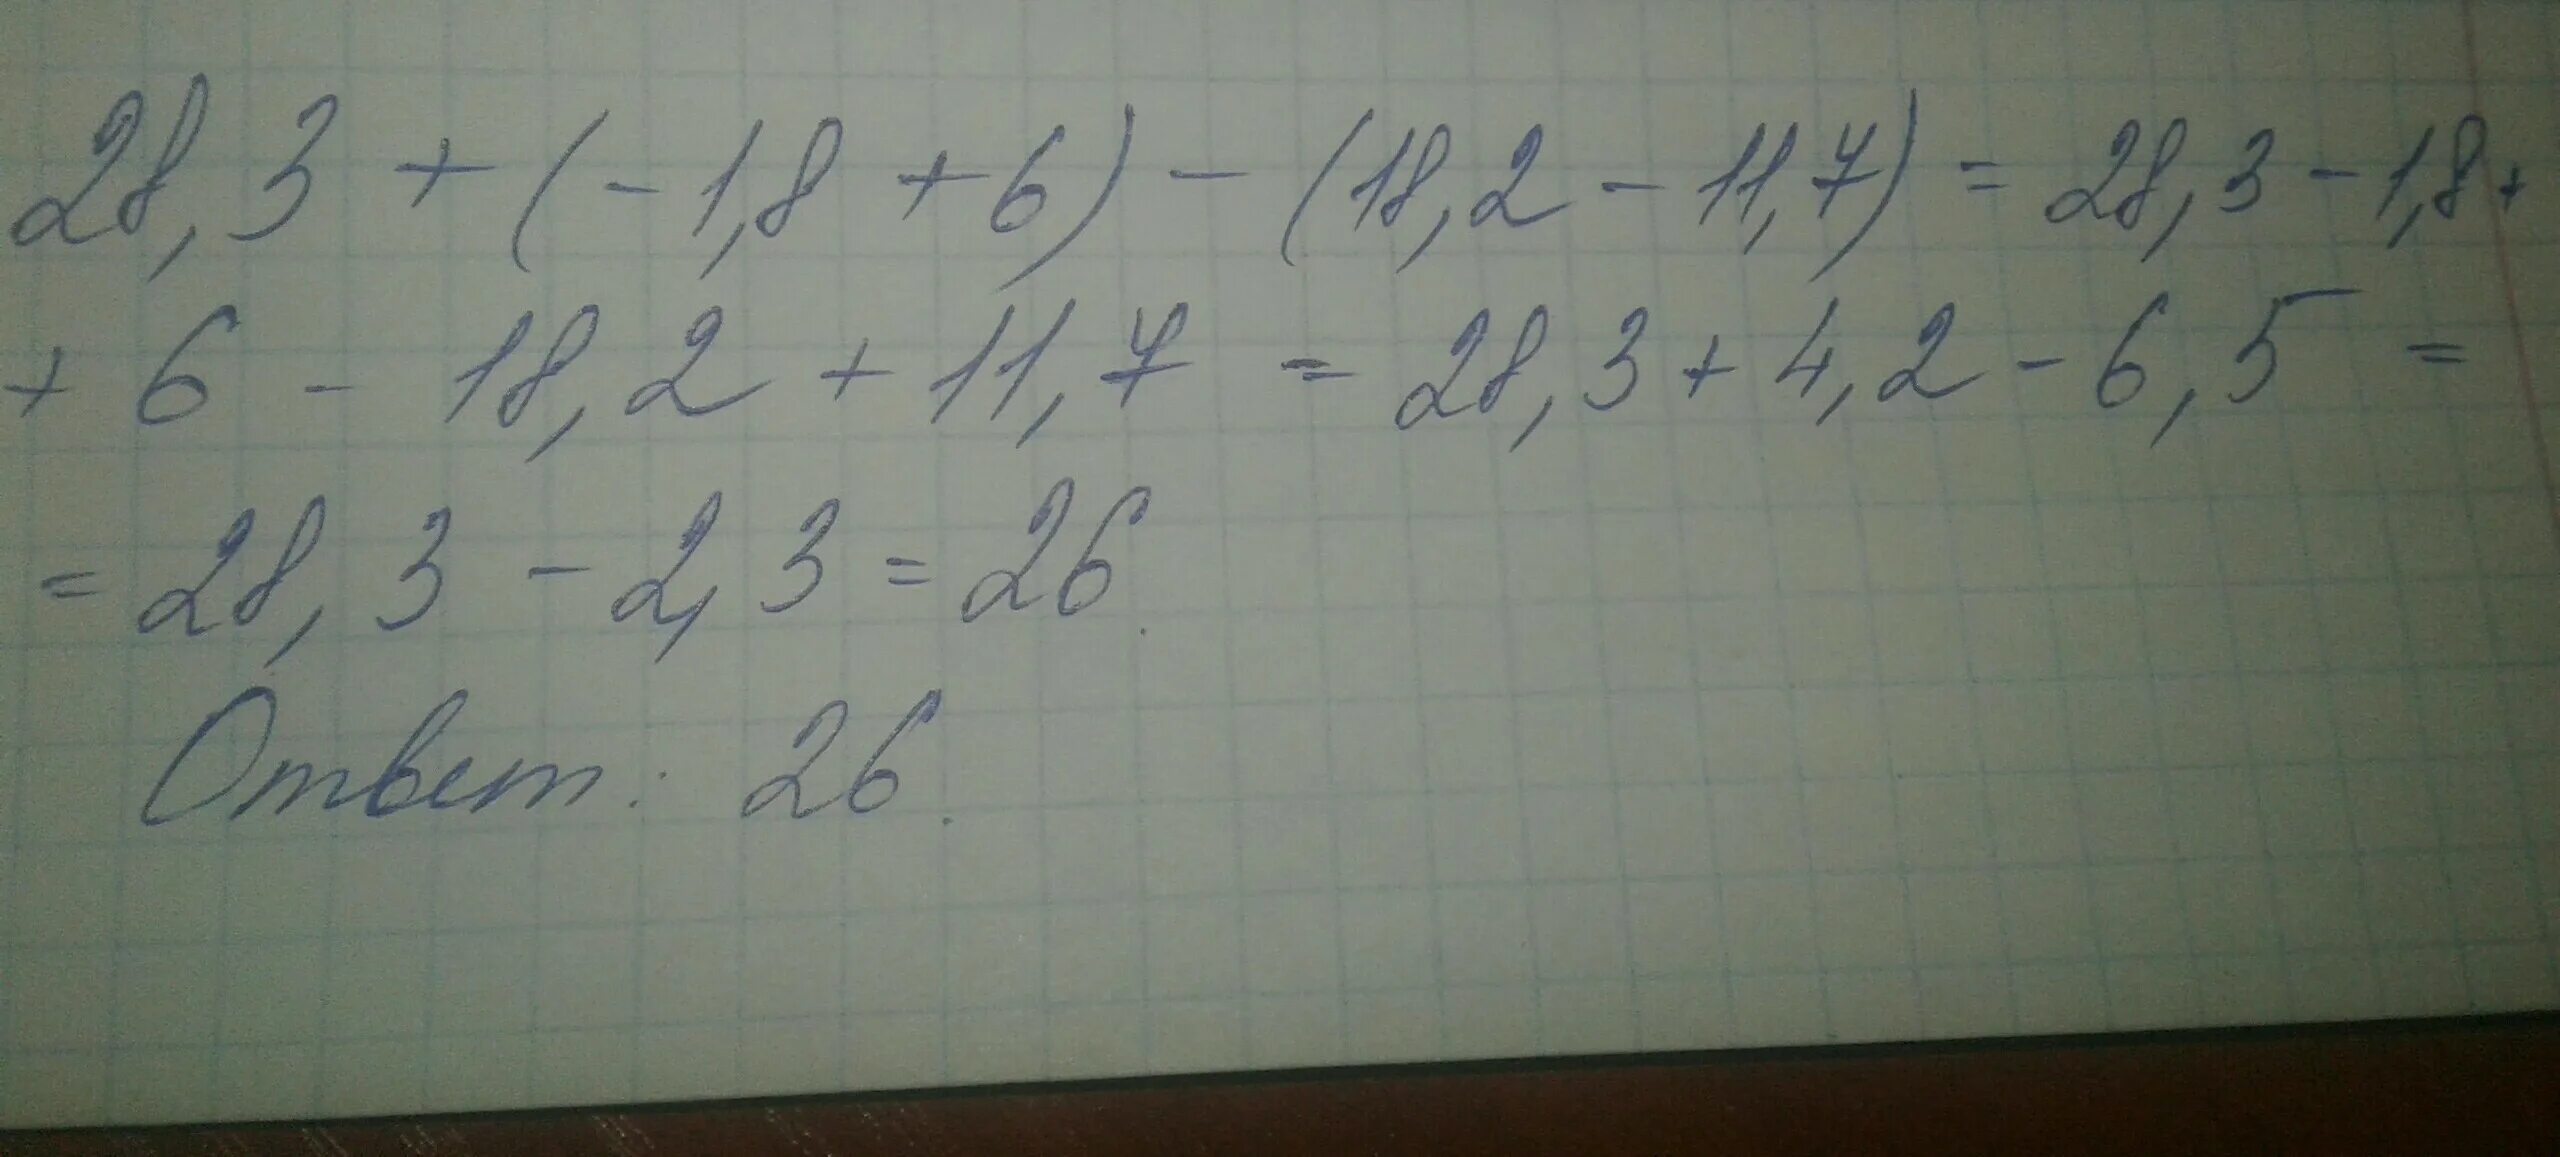 28,3 + (-1,8 + 6) - (18,2 - 11,7) = 28,3 - 1,8 +
+ 6 - 18,2 + 11,7 = 28,3 + 4,2 - 6,5 =
= 28,3 - 2,3 = 26.
Ответ: 26.